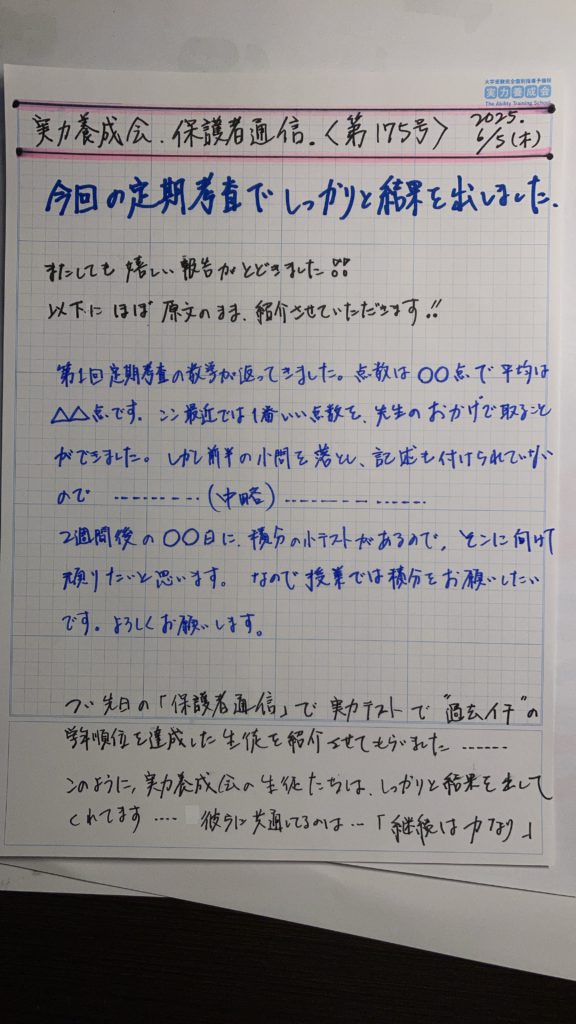 大学受験完全個別指導予備校
実力養成会
The Ability Training School
実力養成会.保護者通信.〈第175号〉
2025.
6/5(木)
今回の定期考査でしっかりと結果を出しました.
またしても嬉しい報告がとどきました!!
以下にほぼ原文のまま、紹介させていただきます!!
第1回定期考査の数学が返ってきました。点数は〇〇点で平均は
△△点です。ここ最近では1番いい点数を、先生のおかげで取ること
ができました。しかし前半の小問を落とし、記述も付けられていない
ので ---------(中略)---------------
2週間後の〇〇日に、積分の小テストがあるので、そこに向けて
頑りたいと思います。なので授業では積分をお願いしたい
です。よろしくお願いします。
つい先日の「保護者通信」で実力テストで"過去イチ"の
学年順位を達成した生徒を紹介させてもらいました ------
このように,実力養成会の生徒たちは、しっかりと結果を出して
くれてます .... 彼らに共通してるのは…「継続は力なり」